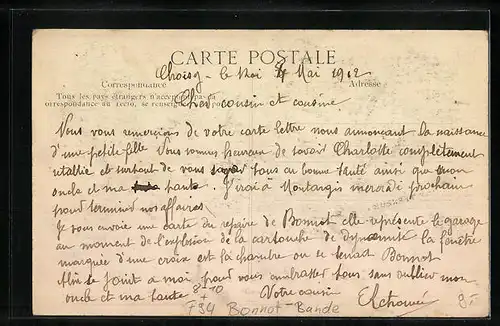 CARTE POSTALE
Choisy-le Roi 4 Mai 1912
Correspondance Adresse
Tous les pays étrangers n'acceptent pas la
correspondance au recto, se renseigner
Cher cousin et cousine
Nous vous remercions de votre carte lettre nous annoncant la naissance
d'une petite fille Nous sommes heureux de savoir Charlotte complètement
rétablie et surtout de vous tous en bonne santé ainsi que mon
oncle et ma tante. J'irai à Montargis mercredi prochain
pour terminer nos affaires.
Je vous envoie une carte du repaire de Bonnot elle représente le garage
au moment de l'explosion de la cartouche de dynamite la fenêtre
marquée d'une croix est la chambre ou se tenait Bonnot
Aline se joint a moi pour vous embrasser tous sans oublier mon
oncle et ma tante
Votre cousin
734 Bonnot-Bande